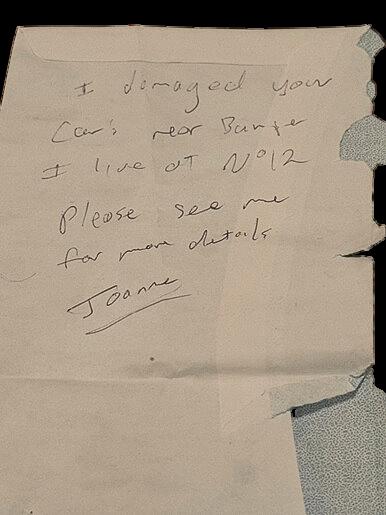 I damaged your
Car's rear Bumper
I live at Nº12
Please see me
for more details
Joanne